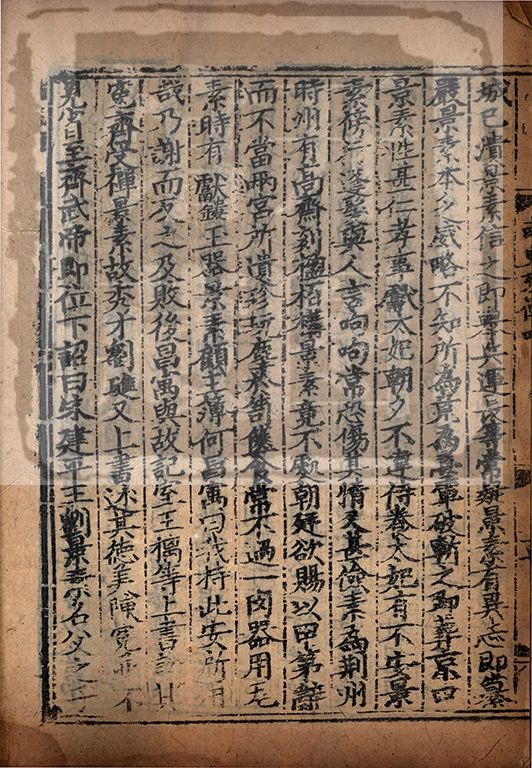 城已潰景素信之即舉兵運長等常疑景素有異志即纂
嚴景素本乏威略不知所為竟為臺軍破斬之即葬京口
景素性甚仁孝事獻太妃朝夕不違侍養太妃有不安景
素傍行蓬髮與人言呴呴常恐傷其情又甚儉素為荊州
時州有高齋刻楹柏構景素竟不處朝廷欲賜以甲第辭
而不當兩宮所遺珍玩塵於笥篋食常不過一肉器用瓦
素時有獻鏤玉器景素顧主簿何昌寓曰我持此安所用
哉乃謝而反之及敗後昌寓與故記室王摛等上書訟其
冤齊受禪景素故秀才劉璡又上書述其德美陳冤並不
見省至齊武帝即位下詔曰宋建平王劉景素名父之子